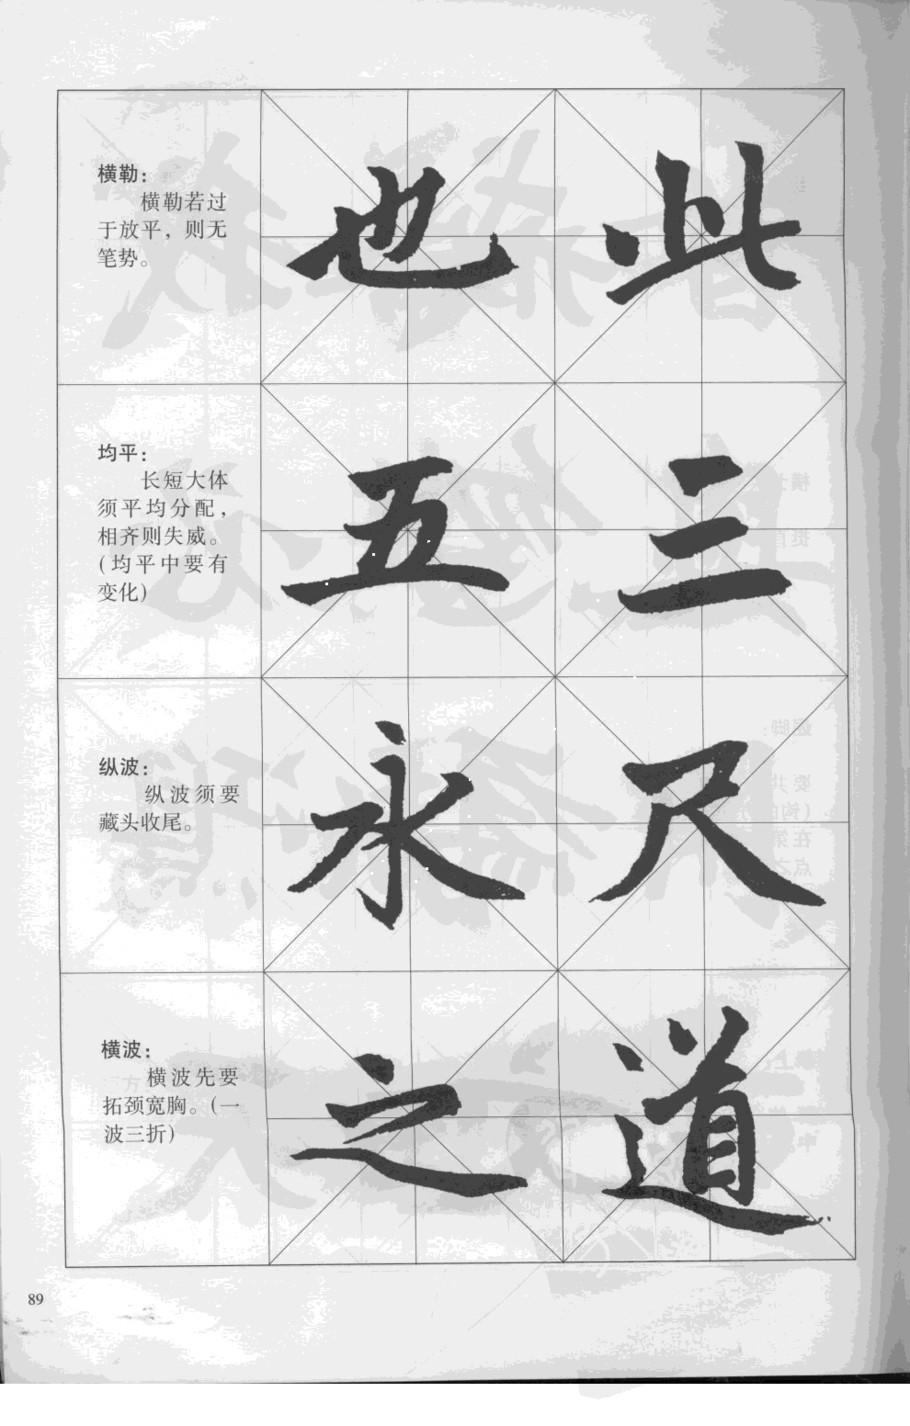 横勒：
横勒若过
于放平，则无
笔势。
也 此
均平：
长短大体
须平均分配，
相齐则失威。
（均平中要有
变化）
五 三
纵波：
纵波须要
藏头收尾。
永 尺
横波：
横波先要
拓颈宽胸。（一
波三折）
之 道
89